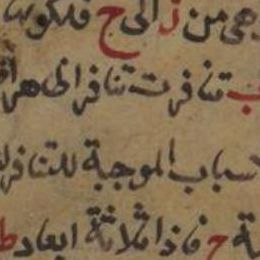 هى من ز الى ج فلكون
ب تنافرت تنافرا ظاهرا
سباب الموجبة للتنافر
ة ج فاذا ثلاثة ابعاد ط